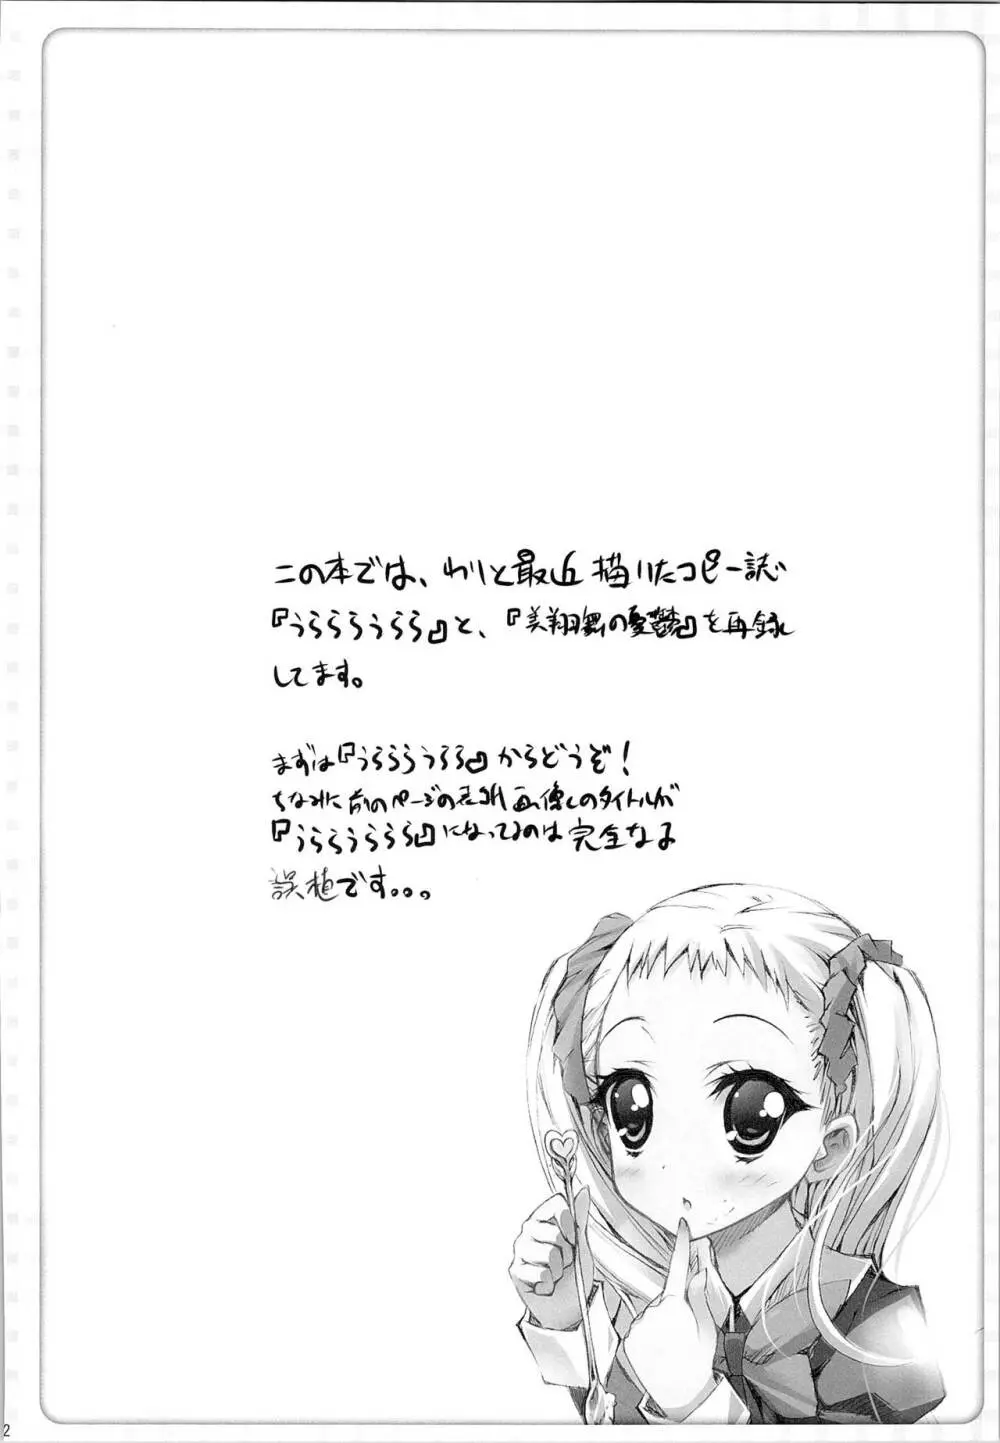 この本では、わりと最近描いたコピー誌
『うららららうらら』と、『美翔舞の憂鬱』を再録
してます。
まずは『うららららうらら』からどうぞ！
ちなみに前のページの表紙画像のタイトルが
『うらららうららら』になってるのは完全なる
誤植です。。。
2